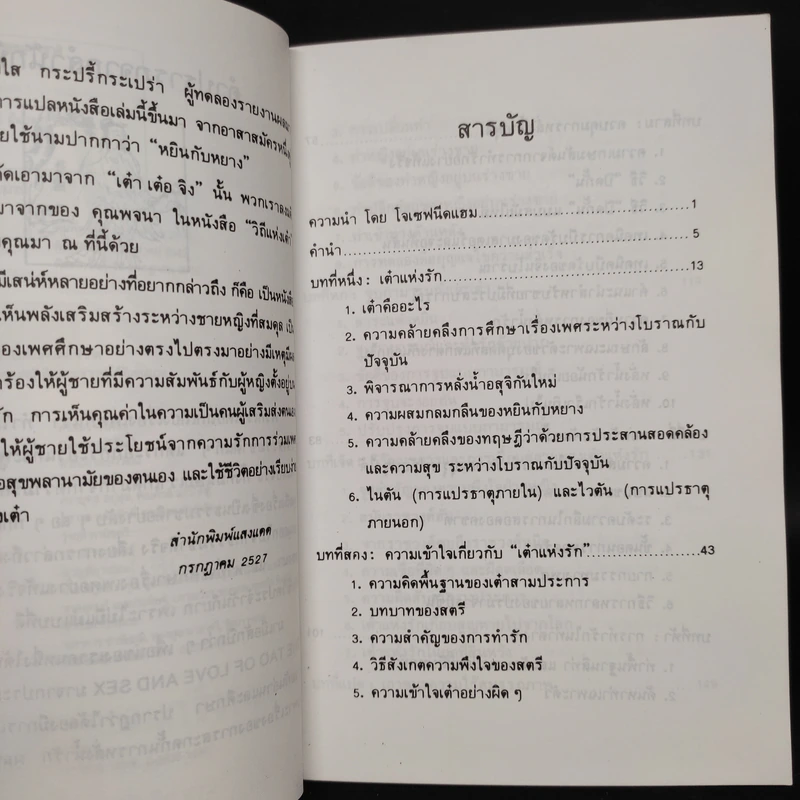 ใส กระปรี้กระเปร่า ผู้ทดลองรายงานผล
การแปลหนังสือเล่มนี้ขึ้นมา จากอาสาสมัครหนึ่ง
ยใช้นามปากกาว่า “หยินกับหยาง”
ัดเอามาจาก “เต๋า เต๋อ จิง” นั้น พวกเรา
มาจากของ คุณพจนา ในหนังสือ “วิถีแห่งเต๋า”
คุณมา ณ ที่นี้ด้วย
มีเสน่ห์หลายอย่างที่อยากกล่าวถึง ก็คือ เป็นหนังสือ
เห็นพลังเสริมสร้างระหว่างชายหญิงที่สมดุล เป็น
องเพศศึกษาอย่างตรงไปตรงมาอย่างมีเหตุมีผล
ร้องให้ผู้ชายที่มีความสัมพันธ์กับผู้หญิงตั้งอยู่บน
รัก การเห็นคุณค่าในความเป็นคนผู้เสริมส่งตนเอง
ให้ผู้ชายใช้ประโยชน์จากความรักการร่วมเพศ
อสุขพลานามัยของตนเอง และใช้ชีวิตอย่างเรียบง่าย
งเต๋า
สำนักพิมพ์แสงแดด
กรกฎาคม 2527
สารบัญ
ความนำ โดย โจเซฟนีดแฮม 1
คำนำ 5
บทที่หนึ่ง: เต๋าแห่งรัก 13
1. เต๋าคืออะไร
2. ความคล้ายคลึงการศึกษาเรื่องเพศระหว่างโบราณกับ
ปัจจุบัน
3. พิจารณาการหลั่งน้ำอสุจิกันใหม่
4. ความผสมกลมกลืนของหยินกับหยาง
5. ความคล้ายคลึงของทฤษฎีว่าด้วยการประสานสอดคล้อง
และความสุข ระหว่างโบราณกับปัจจุบัน
6. ไนตัน (การแปรธาตุภายใน) และไวตัน (การแปรธาตุ
ภายนอก)
บทที่สอง: ความเข้าใจเกี่ยวกับ “เต๋าแห่งรัก” 43
1. ความคิดพื้นฐานของเต๋าสามประการ
2. บทบาทของสตรี
3. ความสำคัญของการทำรัก
4. วิธีสังเกตความพึงใจของสตรี
5. ความเข้าใจเต๋าอย่างผิด ๆ